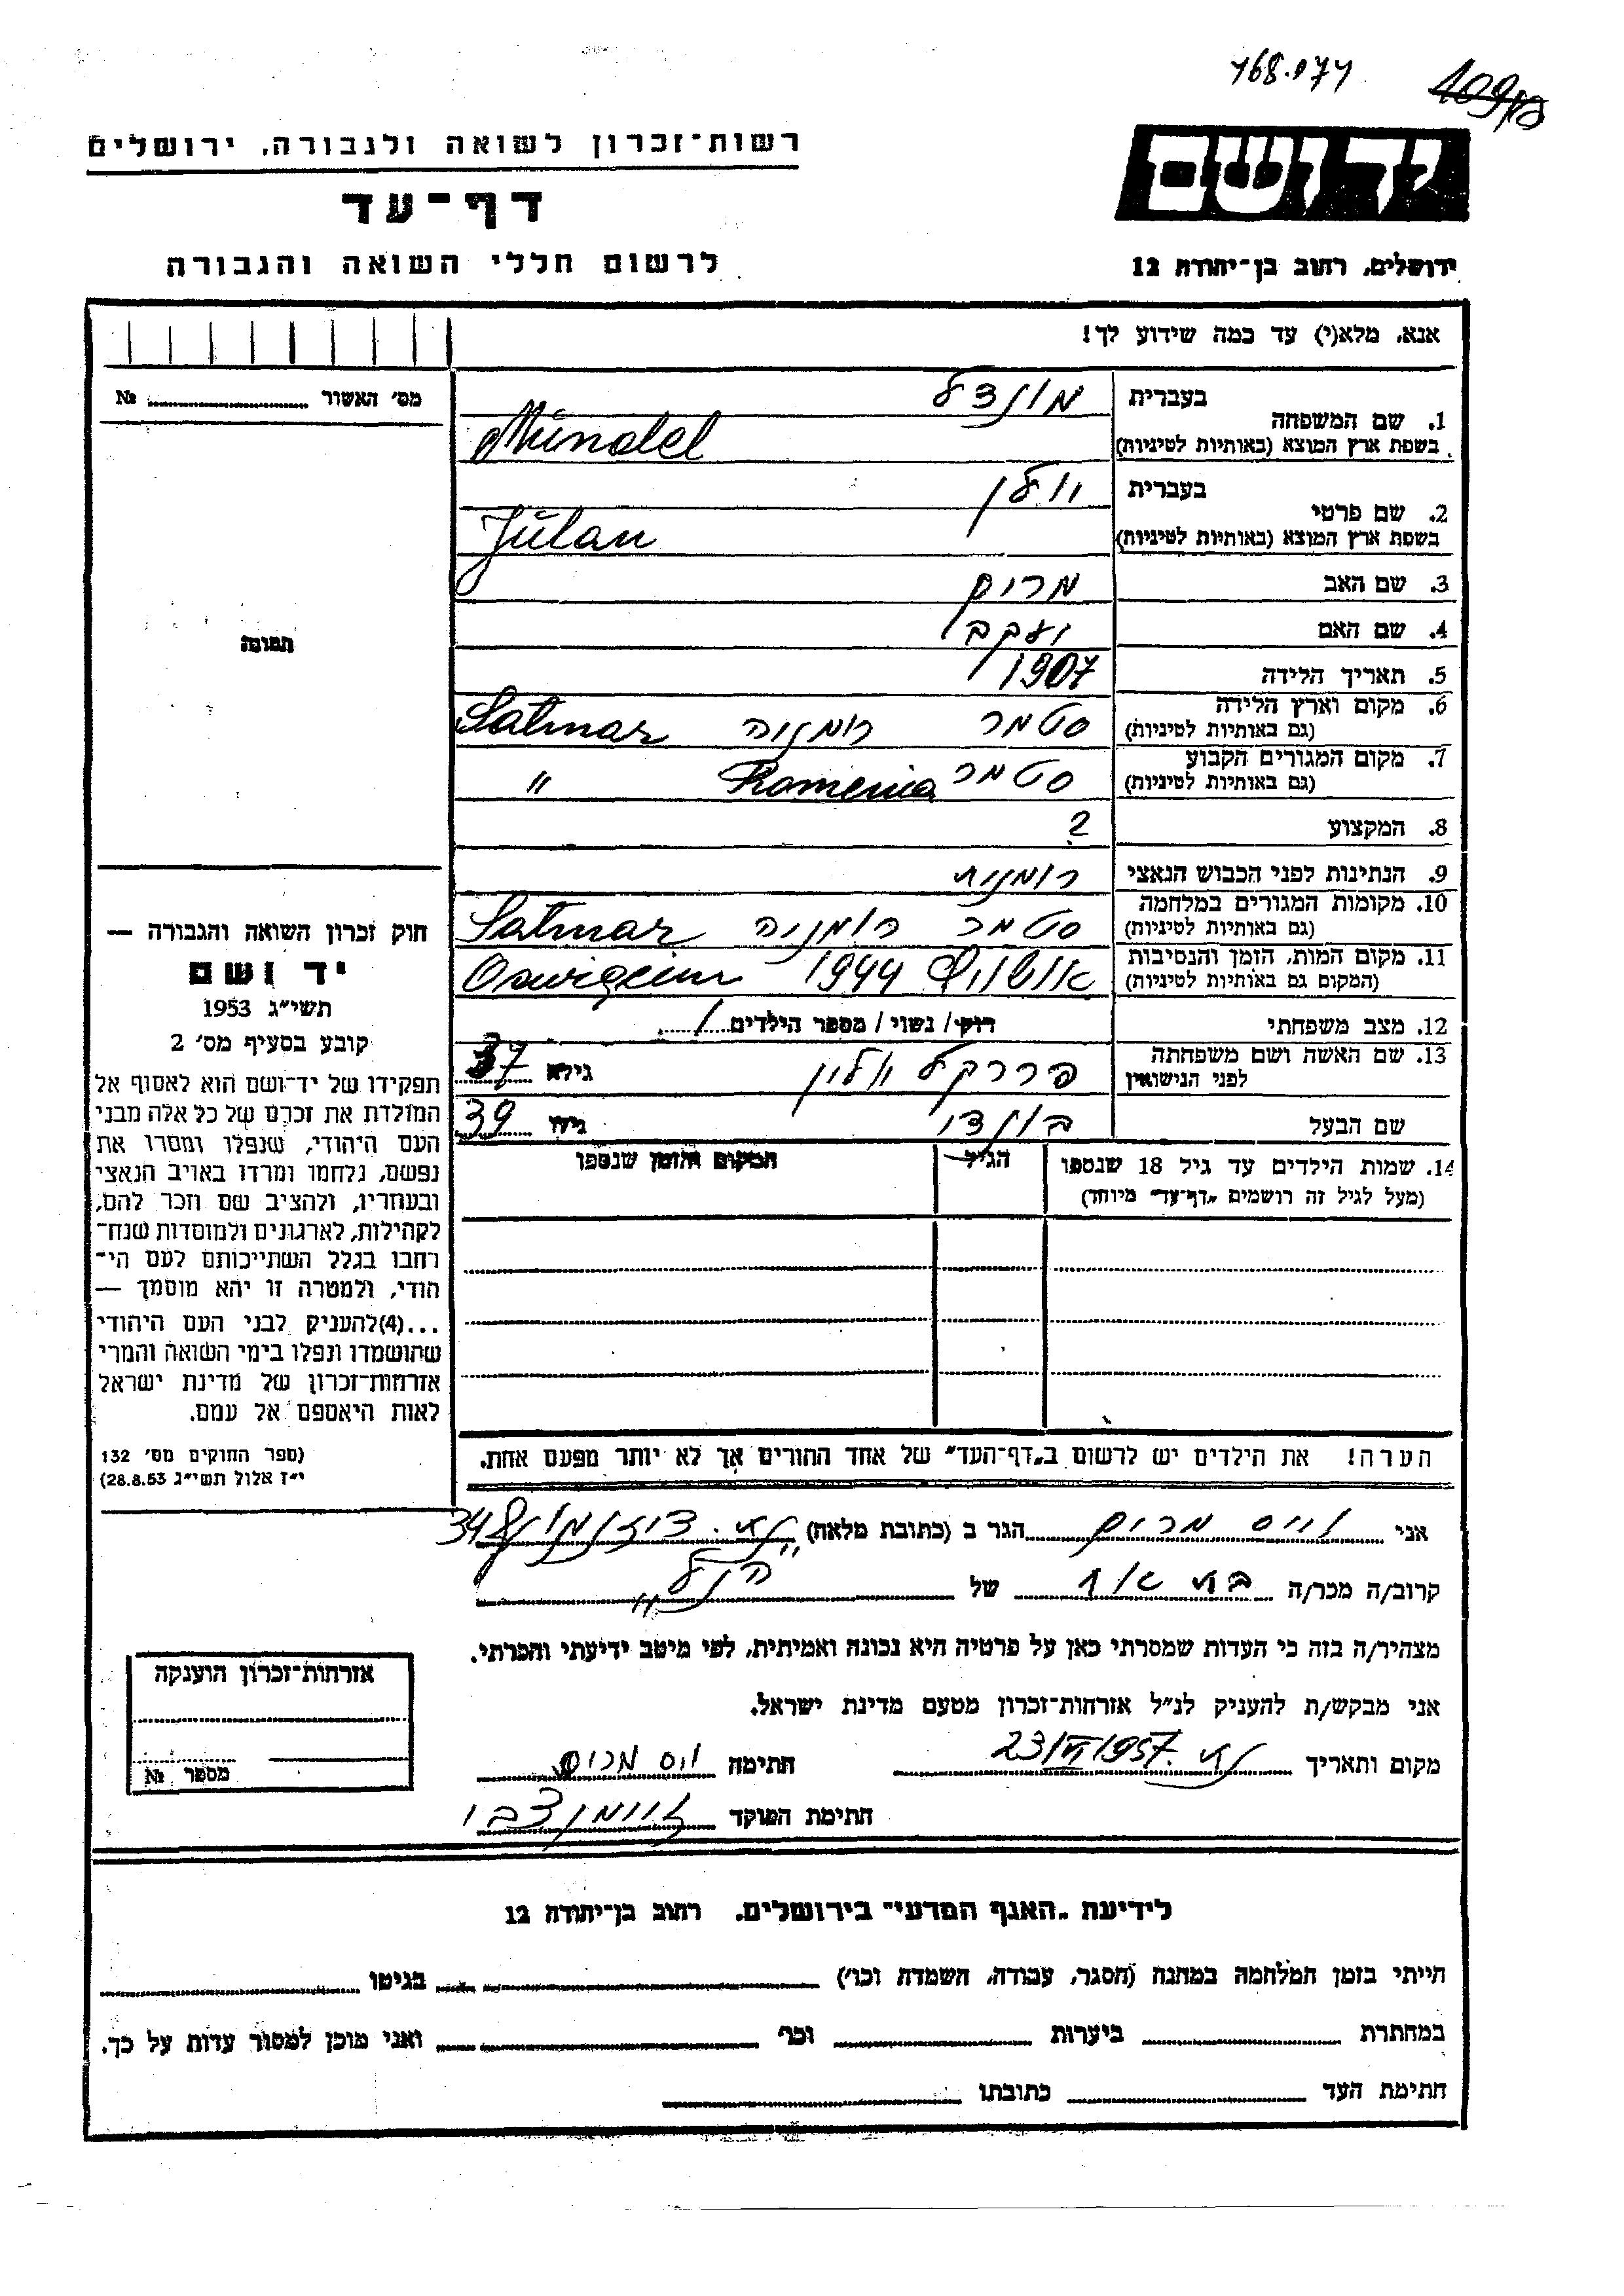 168.074
109/13
רשות־זכרון לשואה ולגבורה, ירושלים
דף־עד
לרשום חללי השואה והגבורה
יד ושם
ירושלים, רחוב בן־יהודה 12
אנא, מלא(י) עד כמה שידוע לך!
מס׳ האשור №
תמונה
1. שם המשפחה בעברית מונדל
בשפת ארץ המוצא (באותיות לטיניות) Mündel
2. שם פרטי בעברית יולן
בשפת ארץ המוצא (באותיות לטיניות) Julan
3. שם האב מרים
4. שם האם יעקב
5. תאריך הלידה 1907
6. מקום וארץ הלידה (גם באותיות לטיניות) סטמר רומניה Satmar
7. מקום המגורים הקבוע (גם באותיות לטיניות) סטמר Romenia "
8. המקצוע ?
9. הנתינות לפני הכבוש הנאצי רומנית
10. מקומות המגורים במלחמה (גם באותיות לטיניות) סטמר רומניה Satmar
11. מקום המות, הזמן והנסיבות (המקום גם באותיות לטיניות) אושויץ 1944
12. מצב משפחתי רוק/ נשוי/ מספר הילדים 1
13. שם האשה ושם משפחתה לפני הנישואין גילא 37
שם הבעל גילו 39
14. שמות הילדים עד גיל 18 שנספו
(מעל לגיל זה רושמים „דף־עד״ מיוחד)
הגיל
המקום והזמן שנספו
הערה! את הילדים יש לרשום ב„דף־העד״ של אחד ההורים אך לא יותר מפעם אחת.
חוק זכרון השואה והגבורה —
יד ושם
תשי״ג 1953
קובע בסעיף מס׳ 2
תפקידו של יד־ושם הוא לאסוף אל
המולדת את זכרם של כל אלה מבני
העם היהודי, שנפלו ומסרו את
נפשם, נלחמו ומרדו באויב הנאצי
ובעוזריו, ולהציב שם וזכר להם,
לקהילות, לארגונים ולמוסדות שנח־
רבו בגלל השתייכותם לעם הי־
הודי, ולמטרה זו יהא מוסמך —
...(4) להעניק לבני העם היהודי
שהושמדו ונפלו בימי השואה והמרי
אזרחות־זכרון של מדינת ישראל
לאות היאספם אל עמם.
(ספר החוקים מס׳ 132
י״ז אלול תשי״ג 28.8.53)
אני וייס מרים הגר ב (כתובת מלאה) 348
קרוב/ה מכר/ה בת אח של הנ"ל
מצהיר/ה בזה כי העדות שמסרתי כאן על פרטיה היא נכונה ואמיתית, לפי מיטב ידיעתי והכרתי.
אני מבקש/ת להעניק לנ״ל אזרחות־זכרון מטעם מדינת ישראל.
מקום ותאריך 23/VI 1957 חתימה ויס מרים
חתימת הפוקד
אזרחות־זכרון הוענקה
מספר №
לידיעת „האגף המדעי״ בירושלים, רחוב בן־יהודה 12
הייתי בזמן המלחמה במחנה (הסגר, עבודה, השמדה וכו׳) בגיטו
במחתרת ביערות וכו׳ ואני מוכן למסור עדות על כך.
חתימת העד כתובתו